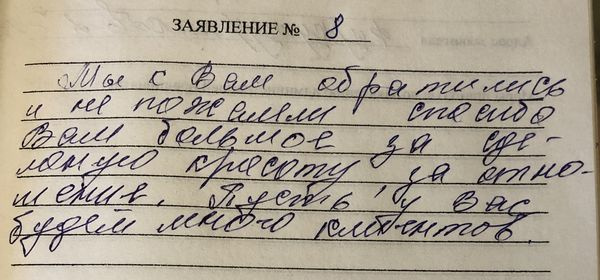 ЗАЯВЛЕНИЕ № 8
Мы к Вам обратились
и не пожалели спасибо
Вам большое за сде-
ланую красоту, за отно-
шение. Пусть у Вас
будет много клиентов.